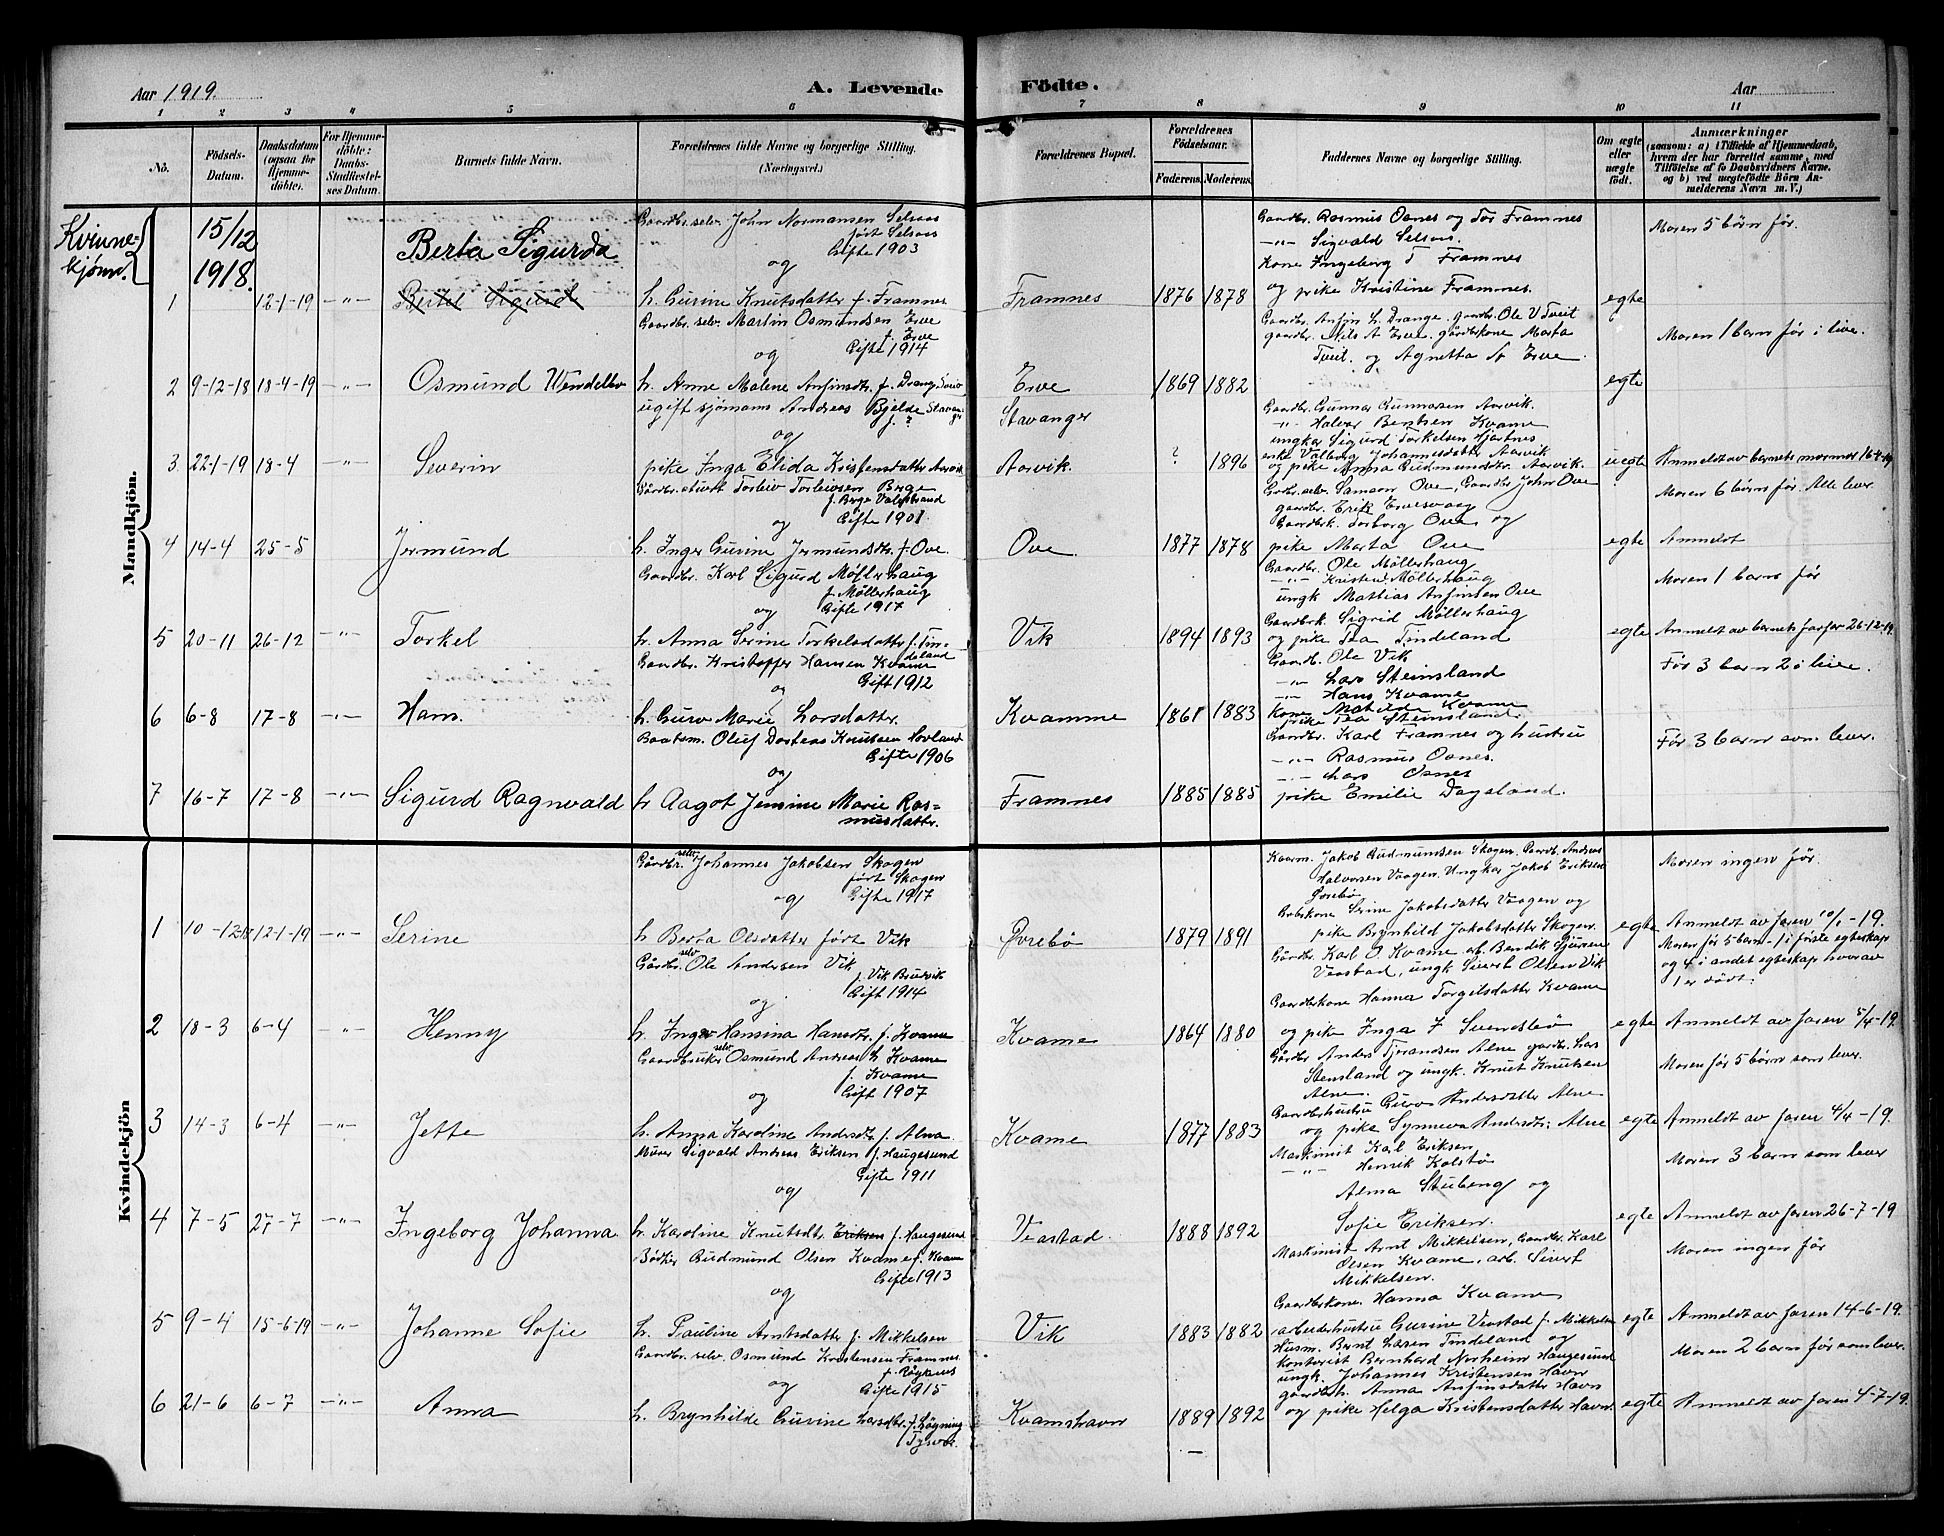 Aar 1919.
A. Levende
Födte.
Aar
1 2 3 4 5 6 7 8 9 10 11
No.
Födsels-
Datum.
Daabsdatum
(ogsaa for
Hjemme-
döbte).
For Hjemme-
döbte:
Daabs-
Stadfæstel-
ses Datum.
Barnets fulde Navn.
Forældrenes fulde Navne og borgerlige Stilling.
(Næringsvei.)
Forældrenes Bopæl.
Forældrenes
Födselsaar.
Faderens. Moderens.
Faddernes Navne og borgerlige Stilling.
Om ægte
eller
uægte
födt.
Anmærkninger
(saasom: a) i Tilfælde af Hjemmedaab,
hvem der har forrettet samme, med
Tilföielse af to Daabsvidners Navne,
og b) ved uægtefödte Börn An-
melderens Navn m. V.)
Mandkjön.
Kvinne-
kjønn.
15/12
1918.
1
12-1-19
-"-
Berta Sigurda
Bertel Sigurd
Gaardbr. selv. John Normansen Selsaas
født Selsaas
Gifte 1903
og
h. Gurine Knutsdatter f. Framnes
Framnes
1876 1878
Gaardbr. Rasmus Oanes og Tor Framnes
-"- Sigvald Selsaas.
Kone Ingeborg T Framnes
og pike Kristine Framnes.
egte
Moren 5 børn før.
2 9-12-18 18-4-19 -"-
Osmund Wendelbo
Gaardbr. selv. Martin Osmundsen Erve
f. Erve
Gifte 1914
og
h. Anne Malene Anfinsdtr. f. Drange
Erve
1869 1882
Gaardbr. Anfin L. Drange. gaardbr. Ole V Tveit
gaardbr. Nils A Erve. gårdbkone Marta
Tveit. og Agnetta Erve.
egte
Moren 1 barn før i live.
3 22-1-19 18-4 -"-
Severin
ugift sjømann Andreas Bjelde
f. ?
og
pike Inga Elida Kristensdatter Aarvik
Stavanger
Aarvik.
? 1896
Gaardbr. Gunnar Gunnarsen Aarvik.
-"- Halvor Bentsen Kvame
ungkar Sigurd Torkelsen Hjartnes
enke Valborg Johannesdatter Aarvik
og pike Anna Gudmundsdtr. Aarvik.
uegte
Anmeldt av barnets mormor 16-4-19
4 14-4 25-5 -"-
Jermund
Torleiv Torleivsen Berge
f. Berge
Gifte 1901.
og
h. Inger Gurine Jermundsdtr. f. Ove.
Ove.
1877 1878
Grdbr. selv. Samson Ove, Gaardbr John Ove
gaardbr. Erik Ervesvaag
Gaardbrk. Torborg Ove og
pike Marta Ove
egte
Moren 6 børn før. Alle lever.
Anmeldt
5 20-11 26-12 -"-
Torkel
Gaardbr. Karl Sigurd Møllerhaug
f. Møllerhaug
og
Gifte 1917
h. Anna Serine Torkelsdatter f. Tin-
deland
Vik
1894 1893
Gaardbr. Ole Möllerhaug
-"- Kristen Möllerhaug
ungk Mathias Anfinsen Ove
Gaardbrk. Sigrid Möllerhaug
og pike Tea Tindeland
egte
Moren 1 barn før
Anmeldt av barnets farfar 26-12-19.
6 6-8 17-8 -"-
Hans.
Gaardbr. Kristoffer Hansen Kvame
Gift 1912
og
h. Guro Marie Larsdatter.
Kvamme
1861 1883
Gaardb. Ole Vik
-"- Lars Steinsland
-"- Hans Kvame
Kone Matilde Kvame
pike Tea Steinsland.
Før 3 barn 2 i live.
7 16-7 17-8 -"-
Sigurd Ragnvald
Baatsm. Oluf Dorteas Knutsen Hovland
Gifte 1906
og
h. Aagot Jensine Marie Ras-
musdatter.
Framnes
1885 1885
Gaardbr. Karl Framnes og hustru
-"- Rasmus Oanes.
-"- Lars Oanes
pike Emilie Dagsland.
Før 3 barn som lever.
Kvindekjön
1 10-12-18 12-1-19 -"-
Serine
Gårdbr. selv Johannes Jakobsen Skogen
født Skogen
og Gifte 1917
h Berta Olsdatter født Vik
Øvrebø
1879 1891
Kaarm. Jakob Gudmundsen Skogen. Gaardb. Andreas
Halvorsen Vaagen. Ungkar Jakob Eriksen
Øvrebø
Serine Jakobsdatter Vaagen og
pike Brynhild Jakobsdatter Skogen
egte
Moren ingen før.
Anmeldt av faren 10/1-19.
2 18-3 6-4 -"-
Henny
Gårdbr. selv Ole Andersen Vik
f. Vik Budvik
Gift 1914
og
h. Inger Hansina Hansdtr. f. Kvame
Kvame
1864 1880
Gårdbr. Karl O. Kvame arb. Bendik Sjursen
Veastad, ungk Sivert Olsen Vik
Gaardbrkone Hanna Torgilsdatter Kvame
og pike Inga F Svendsbø
egte
Moren før 5 barn - 1 i første egteskap
og 4 i andet egteskap hvorav
1 er død.
Anmeldt av faren 5/4-19.
3 14-3 6-4 -"-
Jette
Gaardbruker selv Osmund Andreas H. Kvame
f. Kvame
Gift 1907
og
h. Anna Karoline Andersdtr. f. Alne.
Kvame
1877 1883
Gårdbr Anders Tjerandsen Alne gardbr. Lars
Stensland og ungk. Knut Knutsen
Alne.
Gaardbrhustru Guro Andersdatter Alne
og pike Synneva Andersdtr. Alne
egte
Moren før 5 børn som lever.
Anmeldt av faren 4/4-19.
4 7-5 27-7 -"-
Ingeborg Johanna
Murer Sigvald Andreas Eriksen f. Haugesund
Gifte 1911
og
h. Karoline Knutsdtr. Eriksen f. Haugesund
Veastad.
1888 1892
Maskinist Karl Eriksen
-"- Henrik Kolstø
Alma Stuberg og
Sofie Eriksen.
egte
Moren 3 barn som lever
Anmeldt av faren 26-7-19
5 9-4 15-6-19 -"-
Johanne Sofie
Bødker Gudmund Olsen Kvame f. Kvame
Gifte 1913
og
h. Pauline Arntsdatter f. Mikkelsen
Vik
1883 1882
Maskinist Arnt Mikkelsen, Gaardbr. Karl
Olsen Kvame, arb. Sivert
Mikkelsen.
Gaardbrkone. Hanna Kvame
arbeiderhustru Gurine Veastad f. Mikkelsen
egte
Moren ingen før
Anmeldt av faren 14-6-19.
6 21-6 6-7 -"-
Anna
Gaardbr. selv. Osmund Kristensen Framnes
f. Røyknes
og Gifte 1915
h. Brynhilde Gurine Larsdtr. f. Løgning
Tysvær.
Kvamshavn
1889 1892
Husm. Bernt Larsen Tindeland og
kontorist Bernhard Norheim Haugesund
ungk. Johannes Kristensen Havn
gaardbrh. Anna Anfinsdatter Havn
og pike Helga Kristensdatter Havn
egte
Moren 2 barn før som lever.
Anmeldt av faren 4-7-19.